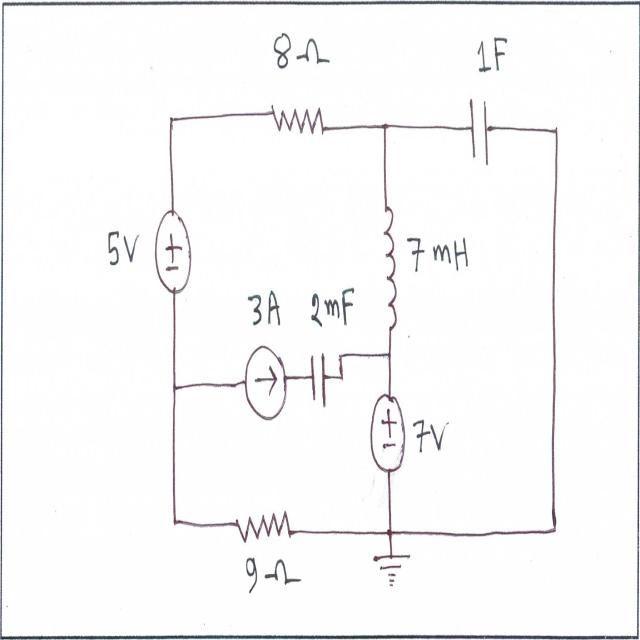 8Ω 1F
5V 7mH
3A 2mF
7V
9Ω